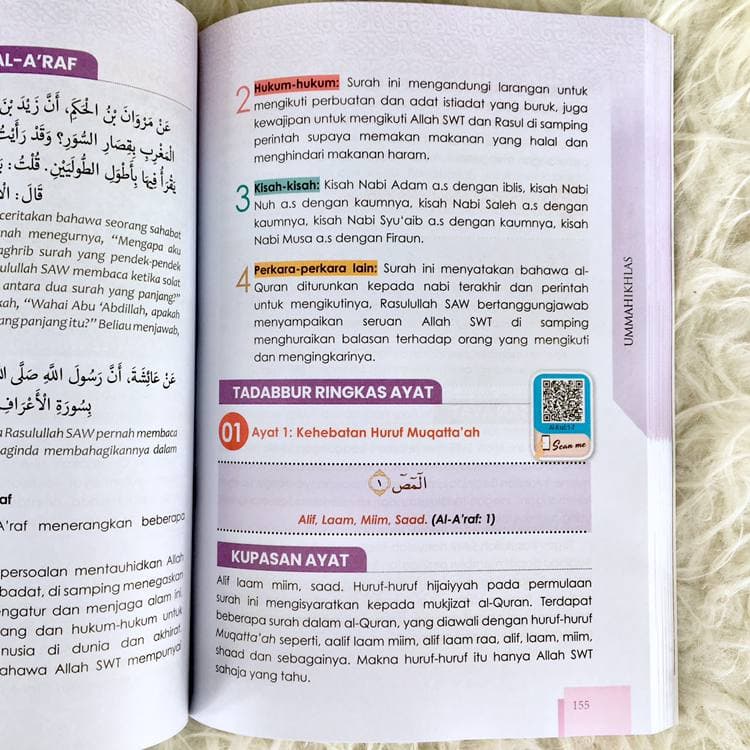 AL-A'RAF
عَنْ مَرْوَانَ بْنِ الْحَكَمِ، أَنَّ زَيْدَ بْنَ
الْمَغْرِبِ بِقِصَارِ السُّوَرِ؟ وَقَدْ رَأَيْتُ
يَقْرَأُ فِيهَا بِأَطْوَلِ الطُّولَيَيْنِ. قُلْتُ:
قَالَ:
ceritakan bahawa seorang sahabat
nah menegurnya, "Mengapa aku
aghrib surah yang pendek-pendek
sulullah SAW membaca ketika solat
antara dua surah yang panjang?"
kah, "Wahai Abu 'Abdillah, apakah
ang panjang itu?" Beliau menjawab,
عَنْ عَائِشَةَ، أَنَّ رَسُولَ اللَّهِ صَلَّى
بِسُورَةِ الْأَعْرَافِ
Rasulullah SAW pernah membaca
aginda membahagikannya dalam
af
A'raf menerangkan beberapa
persoalan mentauhidkan Allah
badat, di samping menegaskan
engatur dan menjaga alam ini.
ang dan hukum-hukum untuk
nusia di dunia dan akhirat.
ahawa Allah SWT mempunyai
2 Hukum-hukum: Surah ini mengandungi larangan untuk
mengikuti perbuatan dan adat istiadat yang buruk, juga
kewajipan untuk mengikuti Allah SWT dan Rasul di samping
perintah supaya memakan makanan yang halal dan
menghindari makanan haram.
3 Kisah-kisah: Kisah Nabi Adam a.s dengan iblis, kisah Nabi
Nuh a.s dengan kaumnya, kisah Nabi Saleh a.s dengan
kaumnya, kisah Nabi Syu'aib a.s dengan kaumnya, kisah
Nabi Musa a.s dengan Firaun.
4 Perkara-perkara lain: Surah ini menyatakan bahawa al-
Quran diturunkan kepada nabi terakhir dan perintah
untuk mengikutinya, Rasulullah SAW bertanggungjawab
menyampaikan seruan Allah SWT di samping
menghuraikan balasan terhadap orang yang mengikuti
dan mengingkarinya.
UMMAHIKHLAS
TADABBUR RINGKAS AYAT
Scan me
01 Ayat 1: Kehebatan Huruf Muqatta'ah
الٓمٓصٓ ١
Alif, Laam, Miim, Saad. (Al-A'raf: 1)
KUPASAN AYAT
Alif laam miim, saad. Huruf-huruf hijaiyyah pada permulaan
surah ini mengisyaratkan kepada mukjizat al-Quran. Terdapat
beberapa surah dalam al-Quran, yang diawali dengan huruf-huruf
Muqatta'ah seperti, aalif laam miim, alif laam raa, alif, laam, miim,
shaad dan sebagainya. Makna huruf-huruf itu hanya Allah SWT
sahaja yang tahu.
155